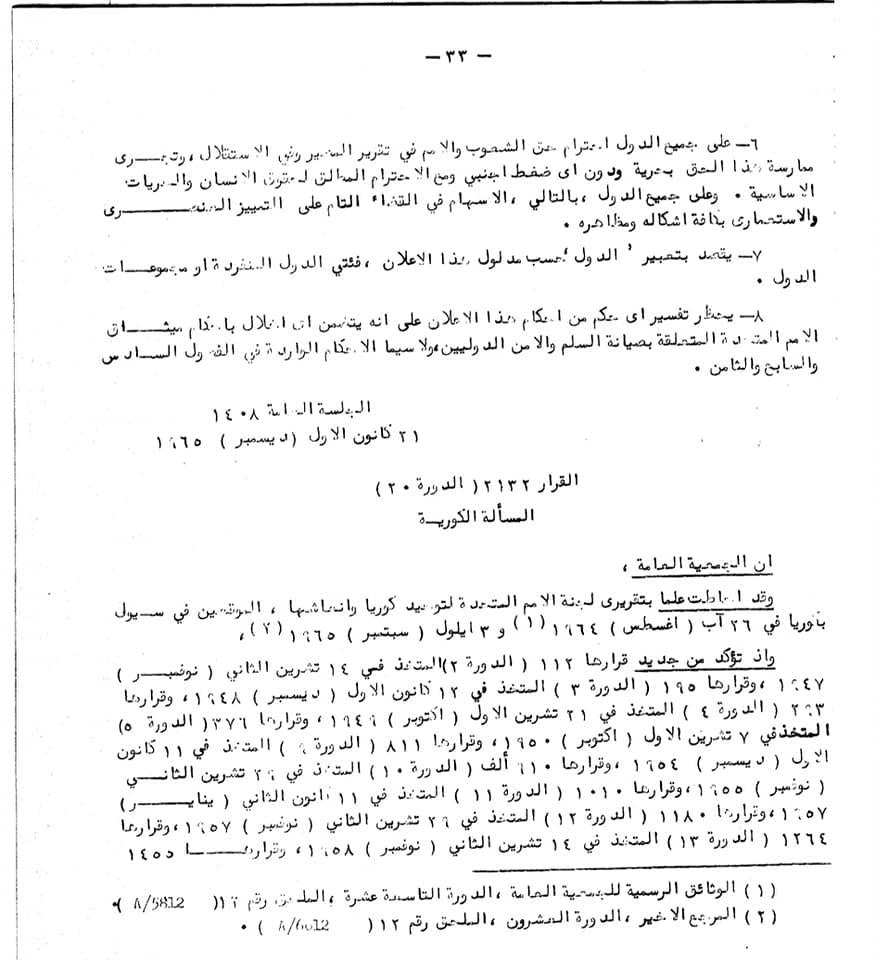 — ٣٣ —
٦— على جميع الدول احترام حق الشعوب والامم في تقرير المصير وفي الاستقلال ، وتجـــرى
ممارسة هذا الحق بحرية ودون اى ضغط اجنبي ومع الاحترام المطلق لحقوق الانسان والحريات
الاساسية . وعلى جميع الدول ، بالتالي ، الاسهام في القضاء التام على التمييز العنصـــرى
والاستعمارى بكافة اشكاله ومظاهره .
٧— يقصد بتعبير ' الدول ' حسب مدلول هذا الاعلان ، فئتي الدول المنفردة او مجموعـــات
الدول .
٨— يحظر تفسير اى حكم من احكام هذا الاعلان على انه يتضمن اى اخلال باحكام ميثـــاق
الامم المتحدة المتعلقة بصيانة السلم والامن الدوليين، ولا سيما الاحكام الواردة في الفصول السـادس
والسابع والثامن .
الجلسة العامة ١٤٠٨
٢١ كانون الاول ( ديسمبر ) ١٩٦٥
القرار ٢١٣٢ ( الدورة ٢٠ )
المسألة الكوريـة
ان الجمعية العامة ،
وقد احاطت علما بتقريرى لجنة الامم المتحدة لتوحيد كوريا وانعاشها ، الموقعين في سـيول
بكوريا في ٢٦ آب ( اغسطس ) ١٩٦٤ (١) و ٣ ايلول ( سبتمبر ) ١٩٦٥ (٢) ،
واذ تؤكد من جديد قرارها ١١٢ ( الدورة ٢ ) المتخذ فـي ١٤ تشرين الثاني ( نوفمبـــر )
١٩٤٧ ، وقرارها ١٩٥ ( الدورة ٣ ) المتخذ في ١٢ كانون الاول ( ديسمبر ) ١٩٤٨ ، وقرارها
٢٩٣ ( الدورة ٤ ) المتخذ في ٢١ تشرين الاول ( اكتوبر ) ١٩٤٩ ، وقرارها ٣٧٦ ( الدورة ٥ )
المتخذ في ٧ تشرين الاول ( اكتوبر ) ١٩٥٠ ، وقرارها ٨١١ ( الدورة ٩ ) المتخذ في ١١ كانون
الاول ( ديسمبر ) ١٩٥٤ ، وقرارها ٩١٠ ألف ( الدورة ١٠ ) المتخذ في ٢٩ تشرين الثانـــي
( نوفمبر ) ١٩٥٥ ، وقرارها ١٠١٠ ( الدورة ١١ ) المتخذ في ١١ كانون الثاني ( ينايـــر )
١٩٥٧ ، وقرارها ١١٨٠ ( الدورة ١٢ ) المتخذ في ٢٩ تشرين الثاني ( نوفمبر ) ١٩٥٧ ، وقرارها
١٢٦٤ ( الدورة ١٣ ) المتخذ في ١٤ تشرين الثاني ( نوفمبر ) ١٩٥٨ ، وقرارهـــا ١٤٥٥
(١) الوثائق الرسمية للجمعية العامة ، الدورة التاسعة عشرة ، الملحق رقم ١٢ ( A/5812 ) .
(٢) المرجع الاخير ، الدورة العشرون ، الملحق رقم ١٢ ( A/6012 ) .